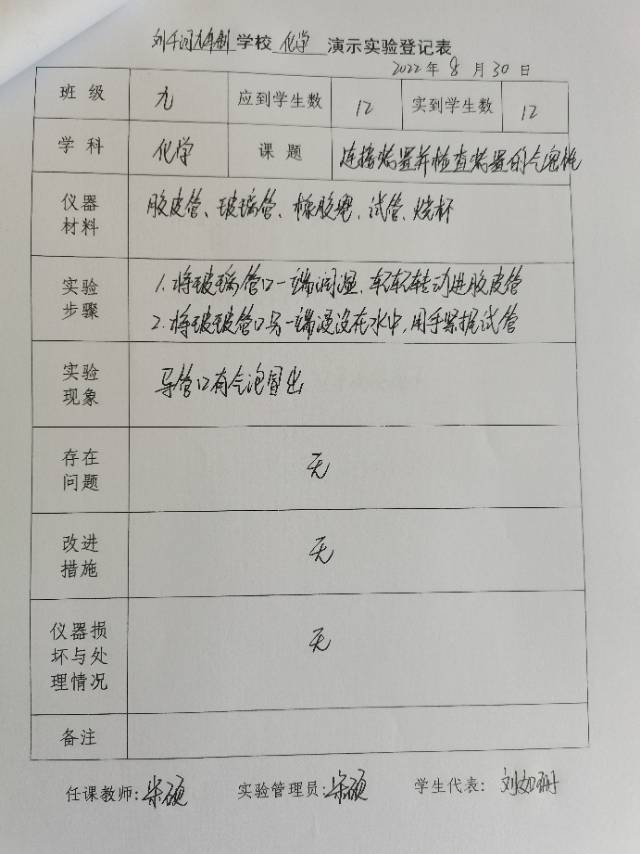 学校 化学 演示实验登记表
2022年 8 月 30 日
班级 九 应到学生数 12 实到学生数 12
学科 化学 课题 连接装置并检查装置的气密性
仪器材料 胶皮管、玻璃管、橡胶塞、试管、烧杯
实验步骤 1.将玻璃管口一端润湿,轻轻转动进胶皮管
2.将玻玻管口另一端浸没在水中,用手紧握试管
实验现象 导管口有气泡冒出
存在问题 无
改进措施 无
仪器损坏与处理情况 无
备注
任课教师: 实验管理员: 学生代表: 刘如珊